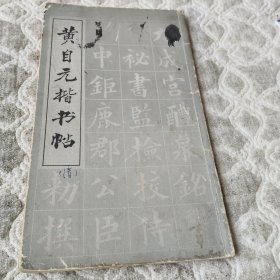 黄自元楷书帖
成宮醴泉銘
祕書監檢校侍
中鉅鹿郡公臣
勑撰